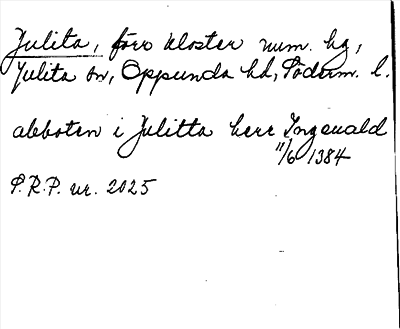 Julita, förv kloster num. hg,
Julita sn, Oppunda hd, Söderm. l.
abboten i Julitta herr Ingewald
11/6 1384
S.R.P. nr. 2025